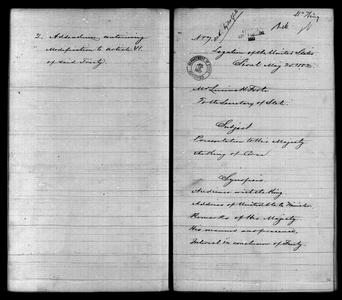 2. Addendum, containing
Modification to Article VI.
of said Treaty.
No 7,
Legation of the United States
Seoul May 25, 1883
Mr Lucius H. Foote
To the Secretary of State.
Subject
Presentation to His Majesty
the King of Corea
Synopsis
Audience with the King
Address of United States Minister
Remarks of His Majesty
His manner and presence,
Interest in conclusion of Treaty.